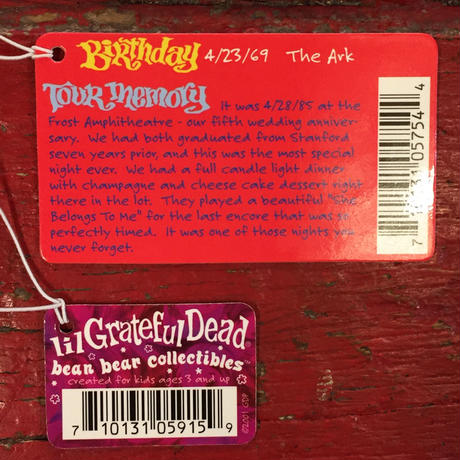 Birthday 4/23/69 The Ark
Tour Memory It was 4/28/85 at the
Frost Amphitheatre - our fifth wedding anniver-
sary. We had both graduated from Stanford
seven years prior, and this was the most special
night ever. We had a full candle light dinner
with champagne and cheese cake dessert right
there in the lot. They played a beautiful "She
Belongs To Me" for the last encore that was so
perfectly timed. It was one of those nights you
never forget.
7 10131 05754 4
lil Grateful Dead
bean bear collectibles™
created for kids ages 3 and up
7 10131 05915 9
©2001 GDP